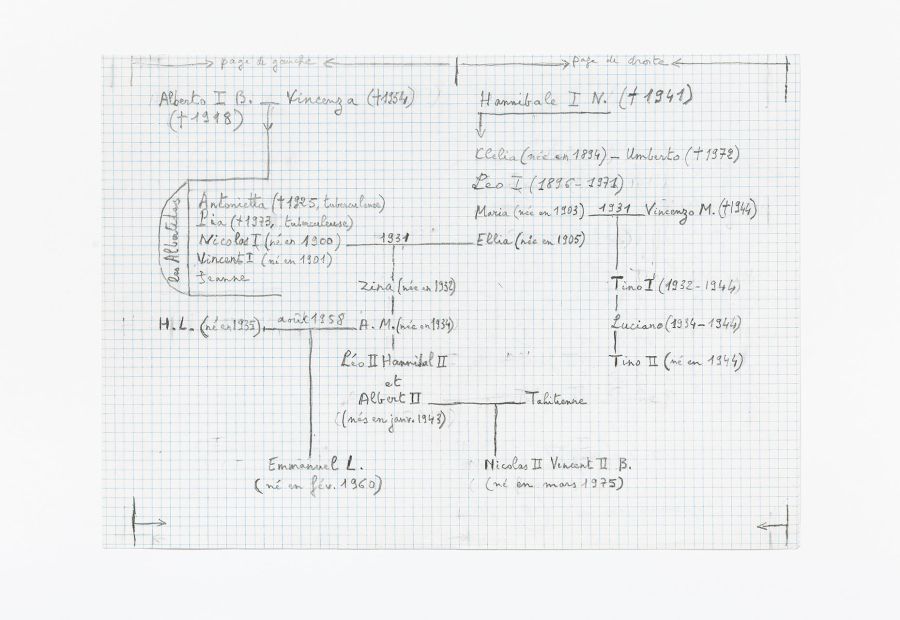 page de gauche
page de droite
Alberto I B. — Vincenza (†1954)
(†1918)
Hannibale I N. (†1941)
Clelia (née en 1894) – Umberto (†1972)
Léo I (1896-1971)
Maria (née en 1903) 1931 Vincenzo M. (†1944)
les Albertelos
Antonietta (†1925, tuberculeuse)
Pia (†1973, tuberculeuse)
Nicolas I (né en 1900) 1931 Ellia (née en 1905)
Vincent I (né en 1901)
Jeanne
Zina (née en 1932)
Tino I (1932-1944)
H.L. (né en 1935) août 1958 A.M. (née en 1934)
Luciano (1934-1944)
Léo II Hannibal II
et
Albert II — Tahitienne
(nés en janv. 1943)
Tino II (né en 1944)
Emmanuel L.
(né en fév. 1960)
Nicolas II Vincent II B.
(né en mars 1975)